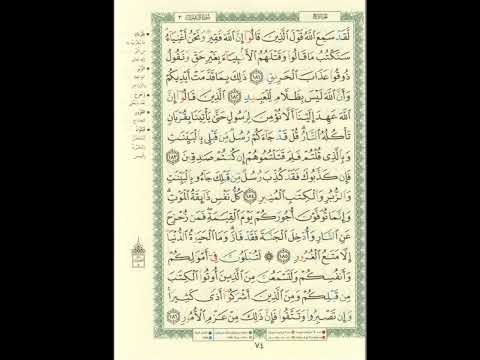 لَّقَدْ سَمِعَ اللَّهُ قَوْلَ الَّذِينَ قَالُوا إِنَّ اللَّهَ فَقِيرٌ وَنَحْنُ أَغْنِيَاءُ
سَنَكْتُبُ مَا قَالُوا وَقَتْلَهُمُ الْأَنبِيَاءَ بِغَيْرِ حَقٍّ وَنَقُولُ
ذُوقُوا عَذَابَ الْحَرِيقِ ١٨١ ذَٰلِكَ بِمَا قَدَّمَتْ أَيْدِيكُمْ
وَأَنَّ اللَّهَ لَيْسَ بِظَلَّامٍ لِّلْعَبِيدِ ١٨٢ الَّذِينَ قَالُوا إِنَّ
اللَّهَ عَهِدَ إِلَيْنَا أَلَّا نُؤْمِنَ لِرَسُولٍ حَتَّىٰ يَأْتِيَنَا بِقُرْبَانٍ
تَأْكُلُهُ النَّارُ قُلْ قَدْ جَاءَكُمْ رُسُلٌ مِّن قَبْلِي بِالْبَيِّنَٰتِ
وَبِالَّذِي قُلْتُمْ فَلِمَ قَتَلْتُمُوهُمْ إِن كُنتُمْ صَٰدِقِينَ ١٨٣
فَإِن كَذَّبُوكَ فَقَدْ كُذِّبَ رُسُلٌ مِّن قَبْلِكَ جَاءُو بِالْبَيِّنَٰتِ
وَالزُّبُرِ وَالْكِتَٰبِ الْمُنِيرِ ١٨٤ كُلُّ نَفْسٍ ذَائِقَةُ الْمَوْتِ
وَإِنَّمَا تُوَفَّوْنَ أُجُورَكُمْ يَوْمَ الْقِيَٰمَةِ فَمَن زُحْزِحَ
عَنِ النَّارِ وَأُدْخِلَ الْجَنَّةَ فَقَدْ فَازَ وَمَا الْحَيَوٰةُ الدُّنْيَا
إِلَّا مَتَٰعُ الْغُرُورِ ١٨٥ ۞ لَتُبْلَوُنَّ فِي أَمْوَٰلِكُمْ
وَأَنفُسِكُمْ وَلَتَسْمَعُنَّ مِنَ الَّذِينَ أُوتُوا الْكِتَٰبَ
مِن قَبْلِكُمْ وَمِنَ الَّذِينَ أَشْرَكُوا أَذًى كَثِيرًا
وَإِن تَصْبِرُوا وَتَتَّقُوا فَإِنَّ ذَٰلِكَ مِنْ عَزْمِ الْأُمُورِ ١٨٦
٧٤